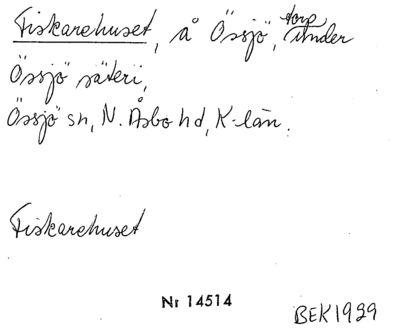 Fiskarehuset, å Össjö, torp under
Össjö säteri,
Össjö sn, N. Åsbo hd, K-län.
Fiskarehuset
Nr 14514
BEK1929